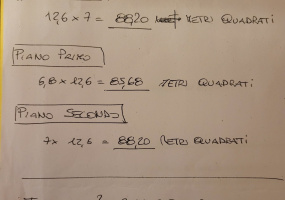 12,6 x 7 = 88,20 METRI QUADRATI
PIANO PRIMO
6,8 x 12,6 = 85,68 METRI QUADRATI
PIANO SECONDO
7x 12,6 = 88,20 METRI QUADRATI